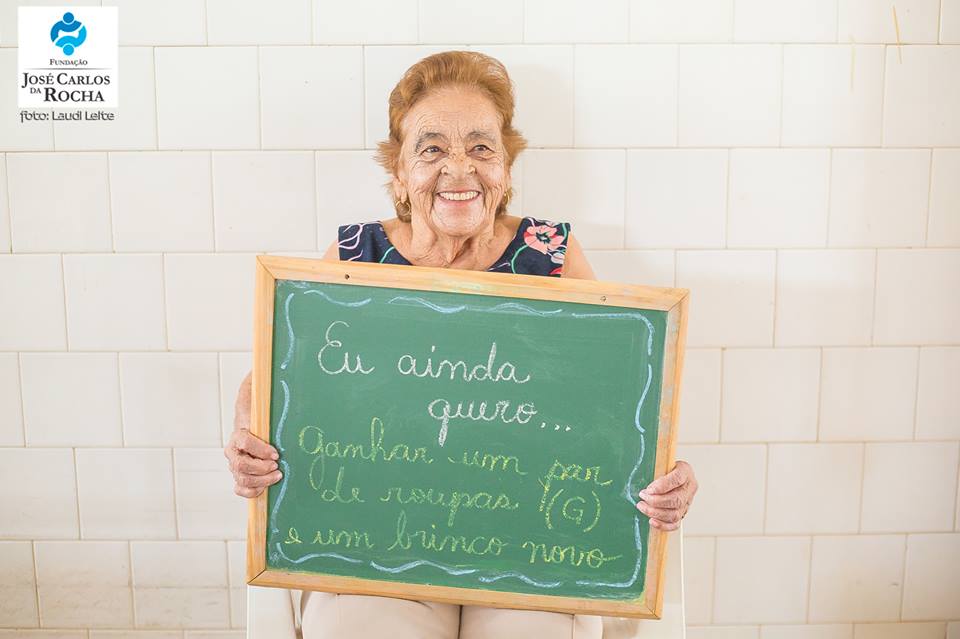 FUNDAÇÃO
JOSÉ CARLOS
DA ROCHA
foto: Laudi Leite
Eu ainda
quero...
Ganhar um par
de roupas (G)
e um brinco novo